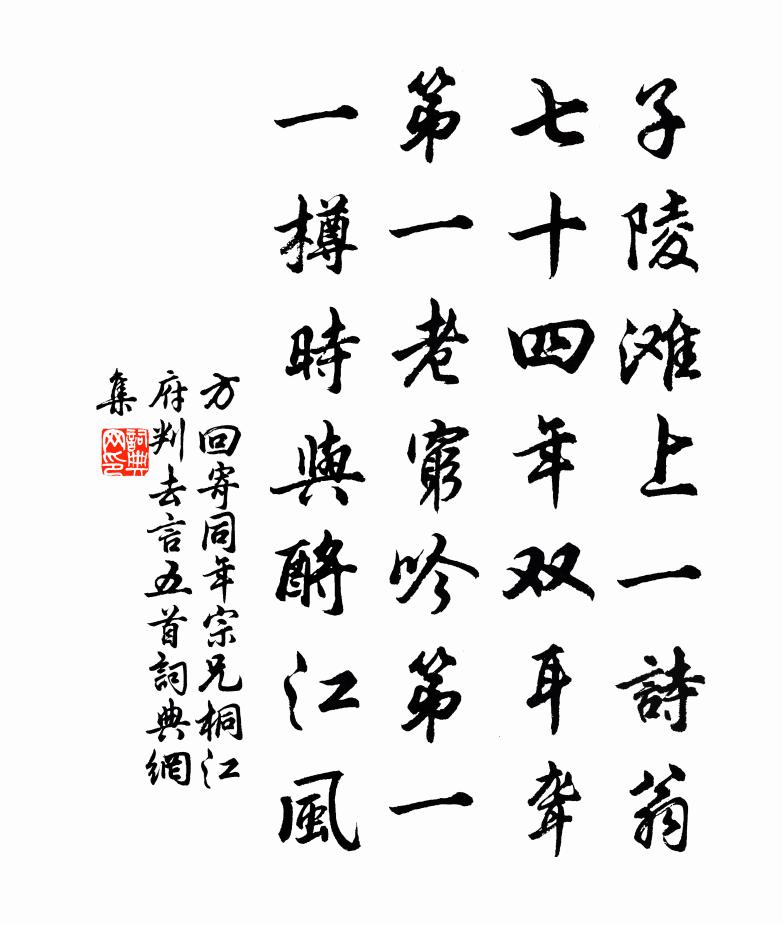 子陵滩上一詩翁
七十四年双耳聋
第一老窮吟第一
一樽時與酹江風
方回寄同年宗兄桐江
府判去言五首詞典網
集
詞典网印